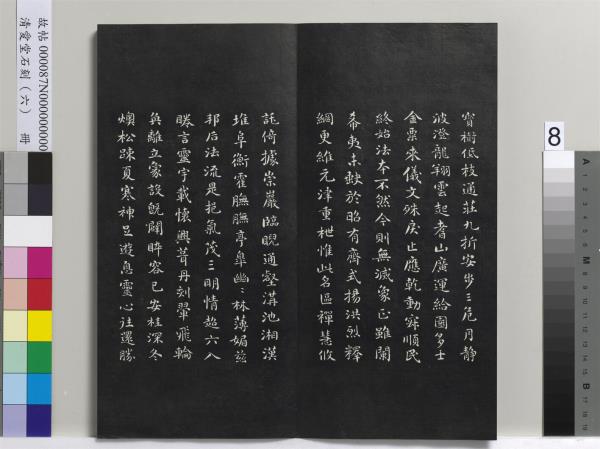 寶樹低枝通莊九折安步三危川静
波澄龍翔雲起耆山廣運給園多士
金粟來儀文殊戾止應乾動寂順民
終始法本不然今則無滅象正雖闌
希夷未缺於昭有齊式揚洪烈釋
網更維元津重枻惟此名區禪慧攸
託倚據崇巖臨睨通壑溝池湘漢
堆阜衡霍膴膴亭皋幽〻林薄媚茲
邦后法流是挹氣茂三明情超六入
睠言靈宇載懷興葺丹刻翬飛輪
奐離立象設既闢睟容已安桂深冬
燠松踈夏寒神足遊息靈心往還勝
故帖 000087N000000000
清愛堂石刻(六) 冊
8